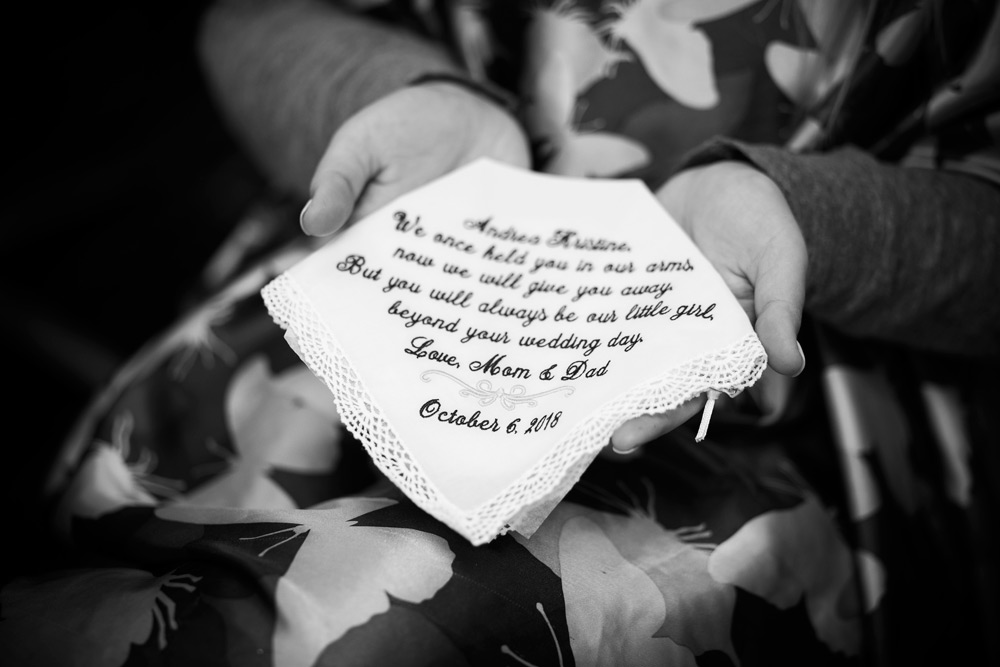 Andrea Kristine,
We once held you in our arms,
now we will give you away.
But you will always be our little girl,
beyond your wedding day.
Love, Mom & Dad
October 6, 2018